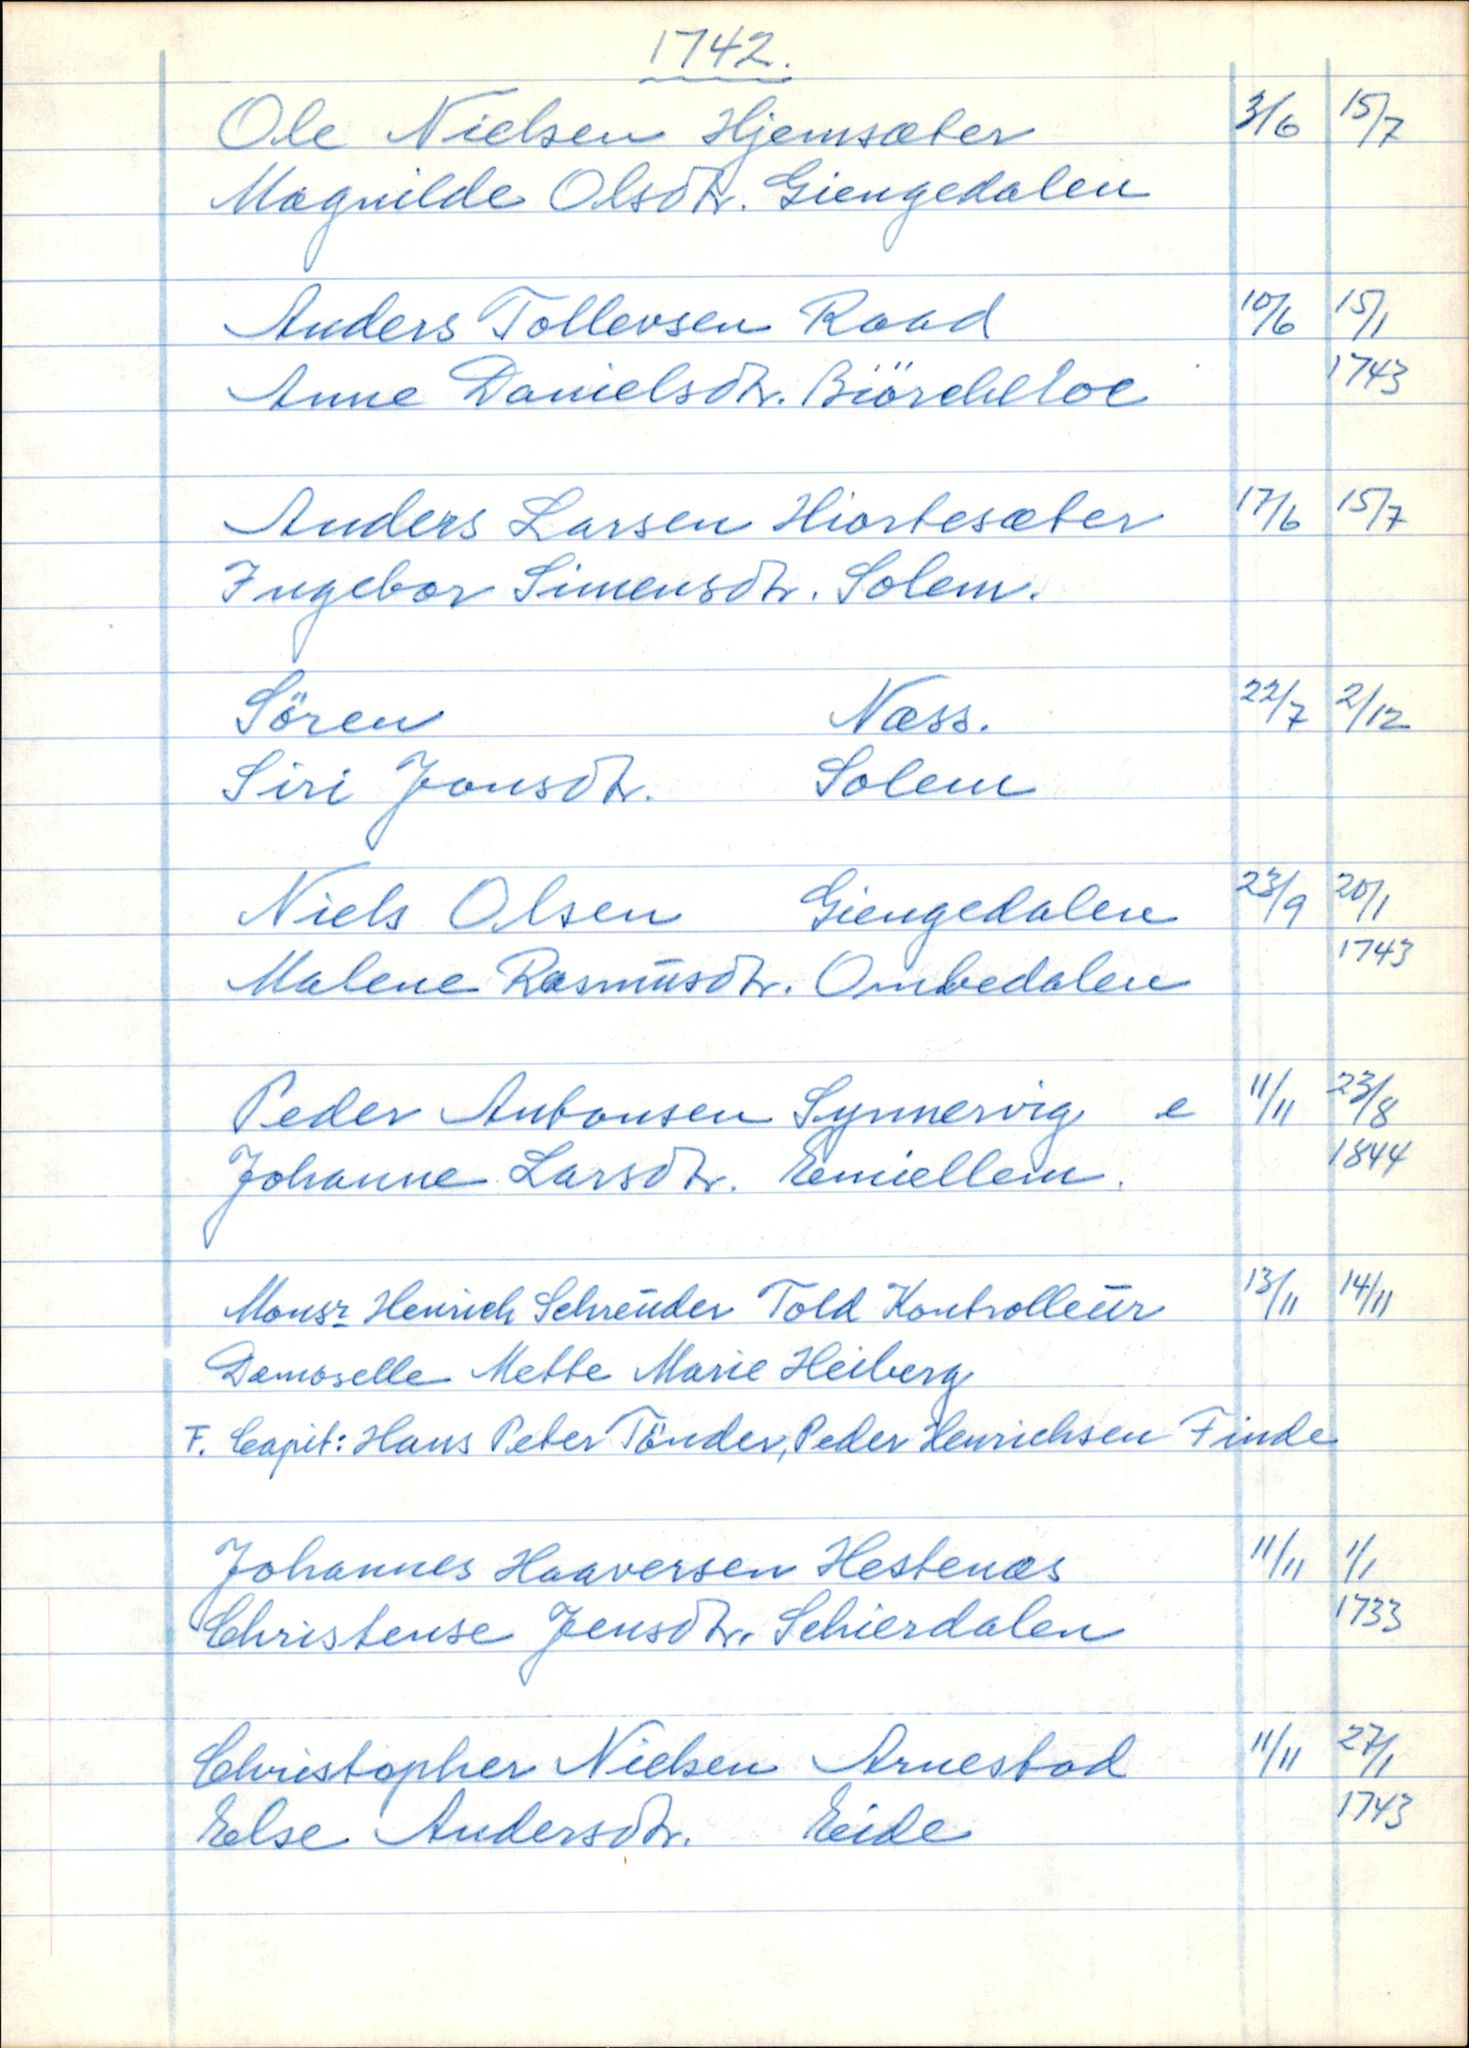 1742.
Ole Nielsen Hjemsæter 3/6 15/7
Magnilde Olsdtr. Giengedalen
Anders Tollevsen Raad 10/6 15/1
Anne Danielsdtr. Biörchloe 1743
Anders Larsen Hiortesæter 17/6 15/7
Ingebor Simensdtr. Solem.
Sören Næss. 22/7 2/12
Siri Jonsdtr. Solem
Niels Olsen Giengedalen 23/9 20/1
1743
Malene Rasmusdtr. Ombedalen
Peder Antonsen Synnervig e 11/11 23/8
Johanne Larsdtr. Emiellem. 1844
Monsr Henrich Schreuder Told Kontrolleur 13/11 14/11
Damoselle Mette Marie Heiberg
F. Capit: Hans Peter Tönder, Peder Henrichsen Finde
Johannes Haaversen Hestenæs 11/11 1/1
Christense Jensdtr. Schierdalen 1733
Christopher Nielsen Arnestad 11/11 27/1
Else Andersdtr. Eide 1743